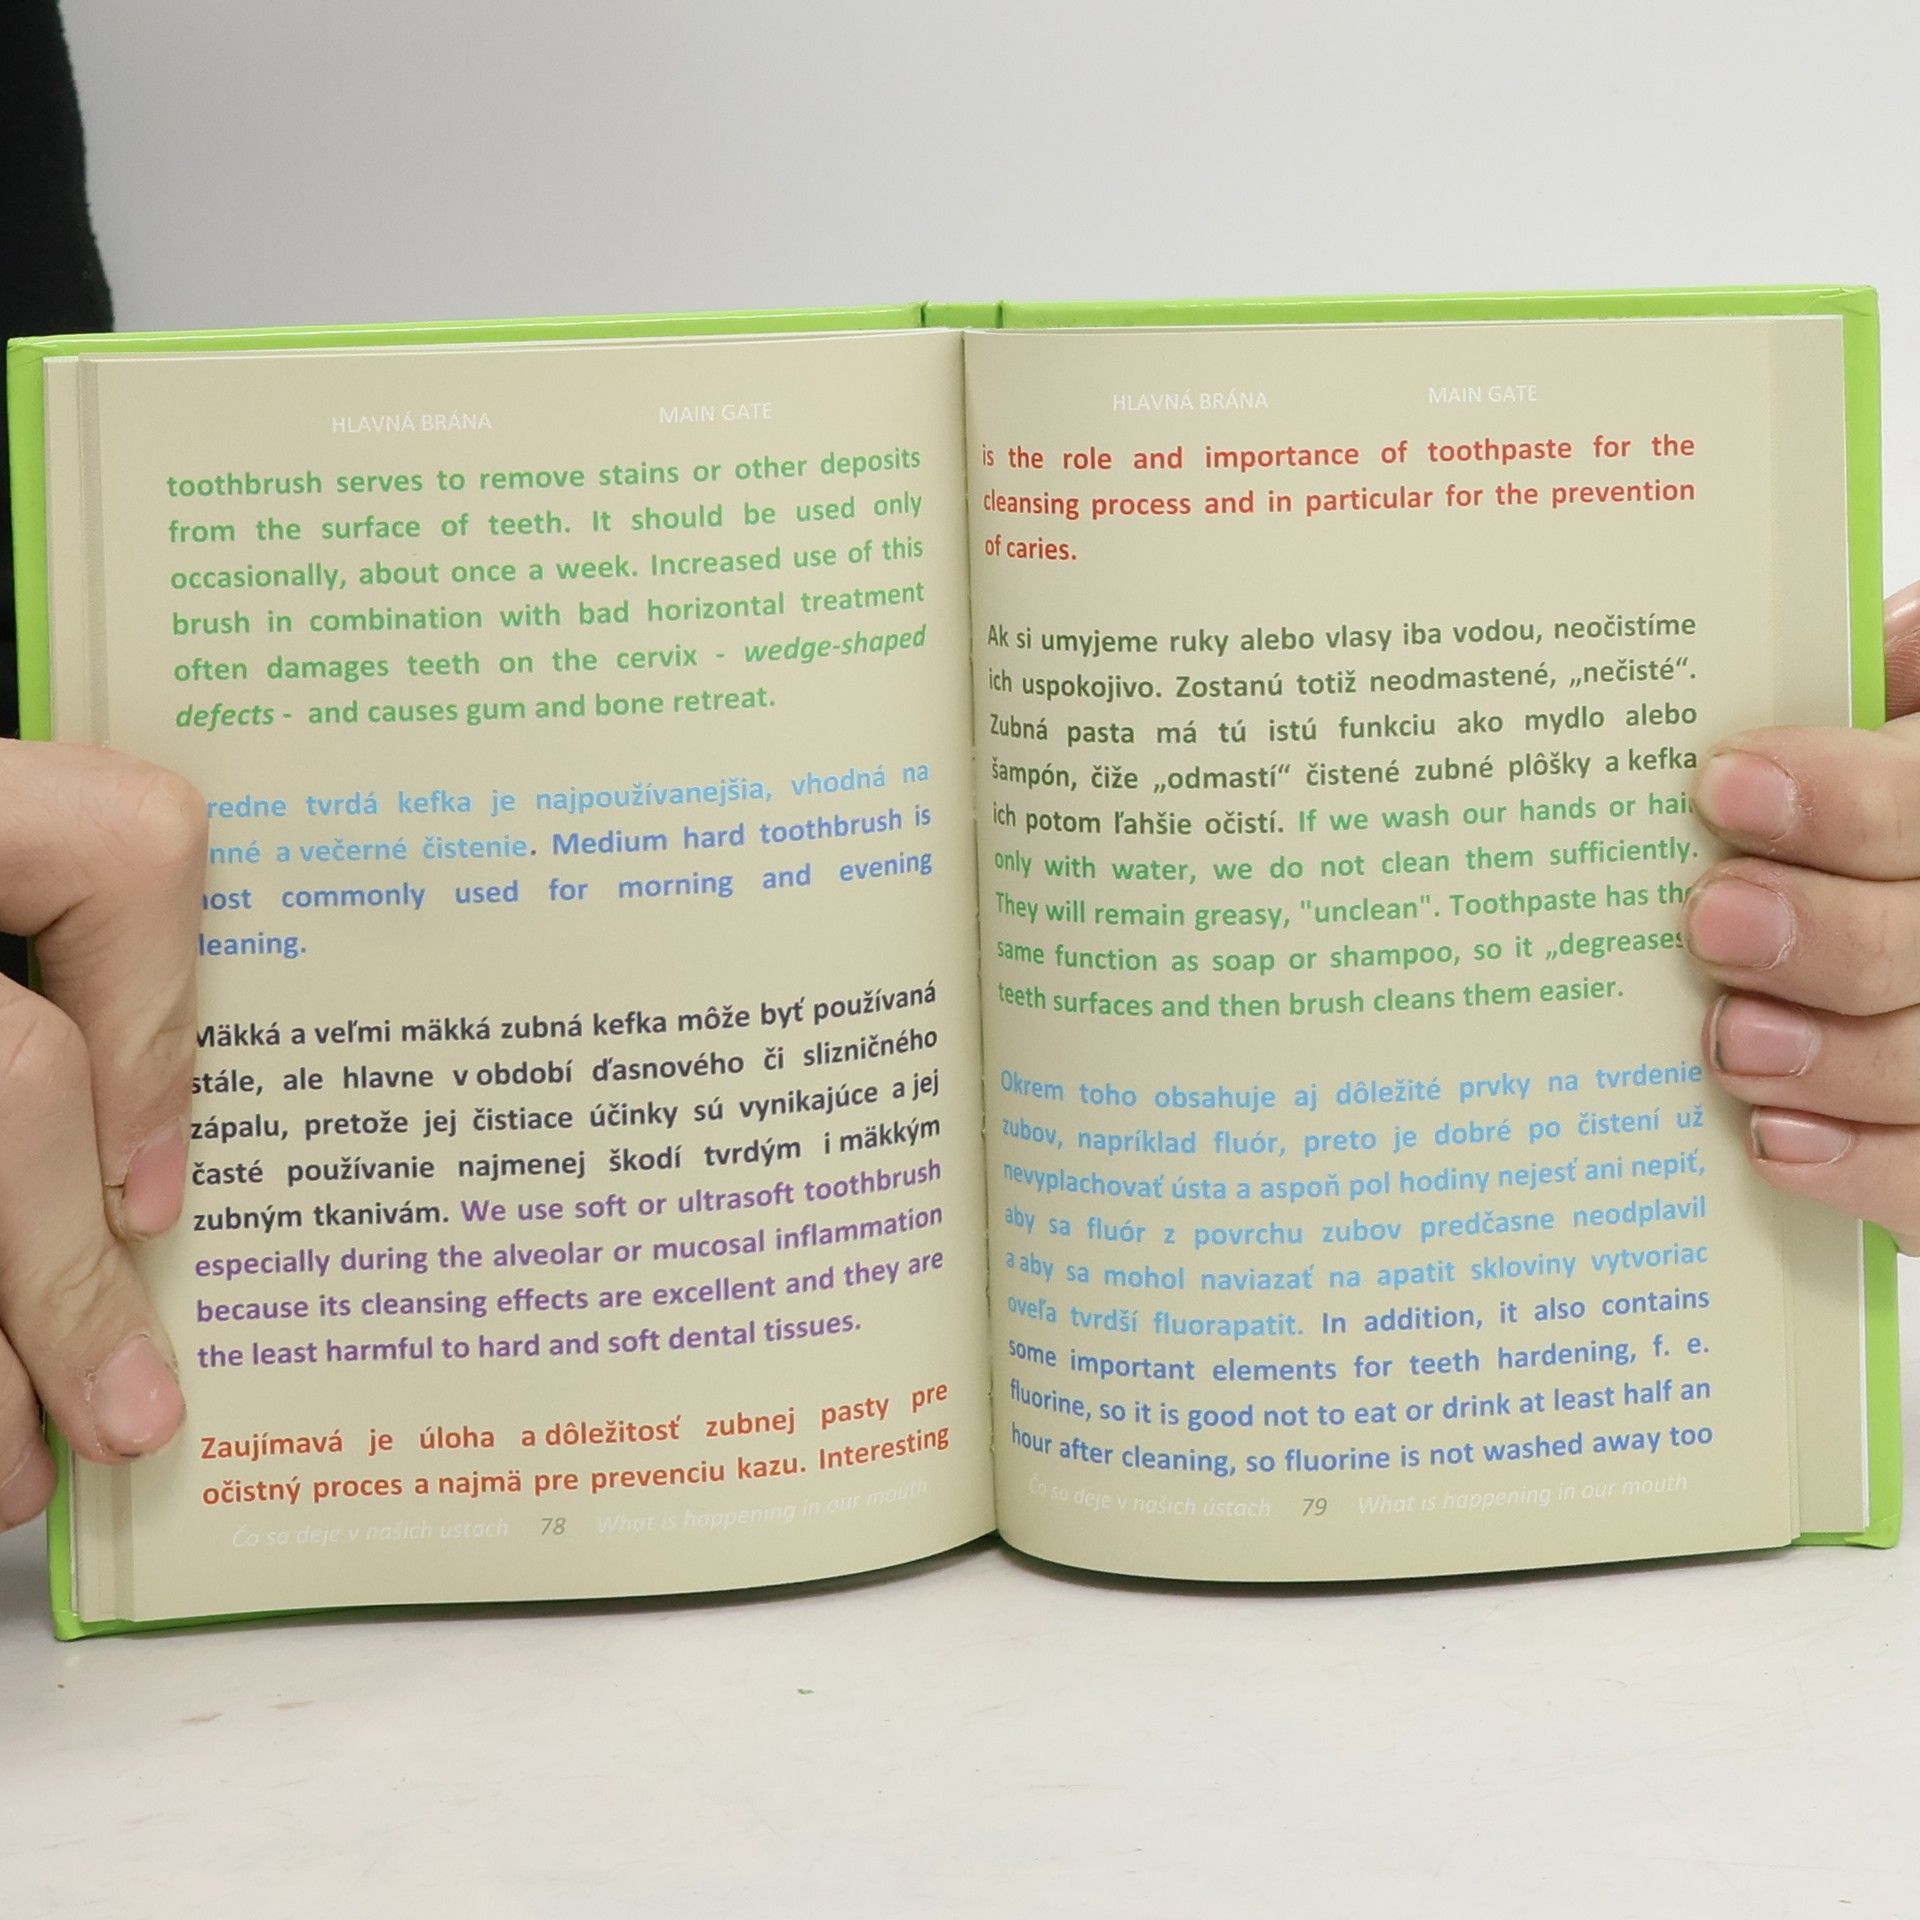 HLAVNÁ BRÁNA MAIN GATE
toothbrush serves to remove stains or other deposits
from the surface of teeth. It should be used only
occasionally, about once a week. Increased use of this
brush in combination with bad horizontal treatment
often damages teeth on the cervix - wedge-shaped
defects - and causes gum and bone retreat.
redne tvrdá kefka je najpoužívanejšia, vhodná na
nné a večerné čistenie. Medium hard toothbrush is
ost commonly used for morning and evening
leaning.
Mäkká a veľmi mäkká zubná kefka môže byť používaná
stále, ale hlavne v období ďasnového či slizničného
zápalu, pretože jej čistiace účinky sú vynikajúce a jej
časté používanie najmenej škodí tvrdým i mäkkým
zubným tkanivám. We use soft or ultrasoft toothbrush
especially during the alveolar or mucosal inflammation
because its cleansing effects are excellent and they are
the least harmful to hard and soft dental tissues.
Zaujímavá je úloha a dôležitosť zubnej pasty pre
očistný proces a najmä pre prevenciu kazu. Interesting
Čo sa deje v našich ústach 78 What is happening in our mouth
HLAVNÁ BRÁNA MAIN GATE
is the role and importance of toothpaste for the
cleansing process and in particular for the prevention
of caries.
Ak si umyjeme ruky alebo vlasy iba vodou, neočistíme
ich uspokojivo. Zostanú totiž neodmastené, „nečisté“.
Zubná pasta má tú istú funkciu ako mydlo alebo
šampón, čiže „odmastí“ čistené zubné plôšky a kefka
ich potom ľahšie očistí. If we wash our hands or hair
only with water, we do not clean them sufficiently.
They will remain greasy, "unclean". Toothpaste has the
same function as soap or shampoo, so it „degreases
teeth surfaces and then brush cleans them easier.
Okrem toho obsahuje aj dôležité prvky na tvrdenie
zubov, napríklad fluór, preto je dobré po čistení už
nevyplachovať ústa a aspoň pol hodiny nejesť ani nepiť,
aby sa fluór z povrchu zubov predčasne neodplavil
a aby sa mohol naviazať na apatit skloviny vytvoriac
oveľa tvrdší fluorapatit. In addition, it also contains
some important elements for teeth hardening, f. e.
fluorine, so it is good not to eat or drink at least half an
hour after cleaning, so fluorine is not washed away too
Čo sa deje v našich ústach 79 What is happening in our mouth